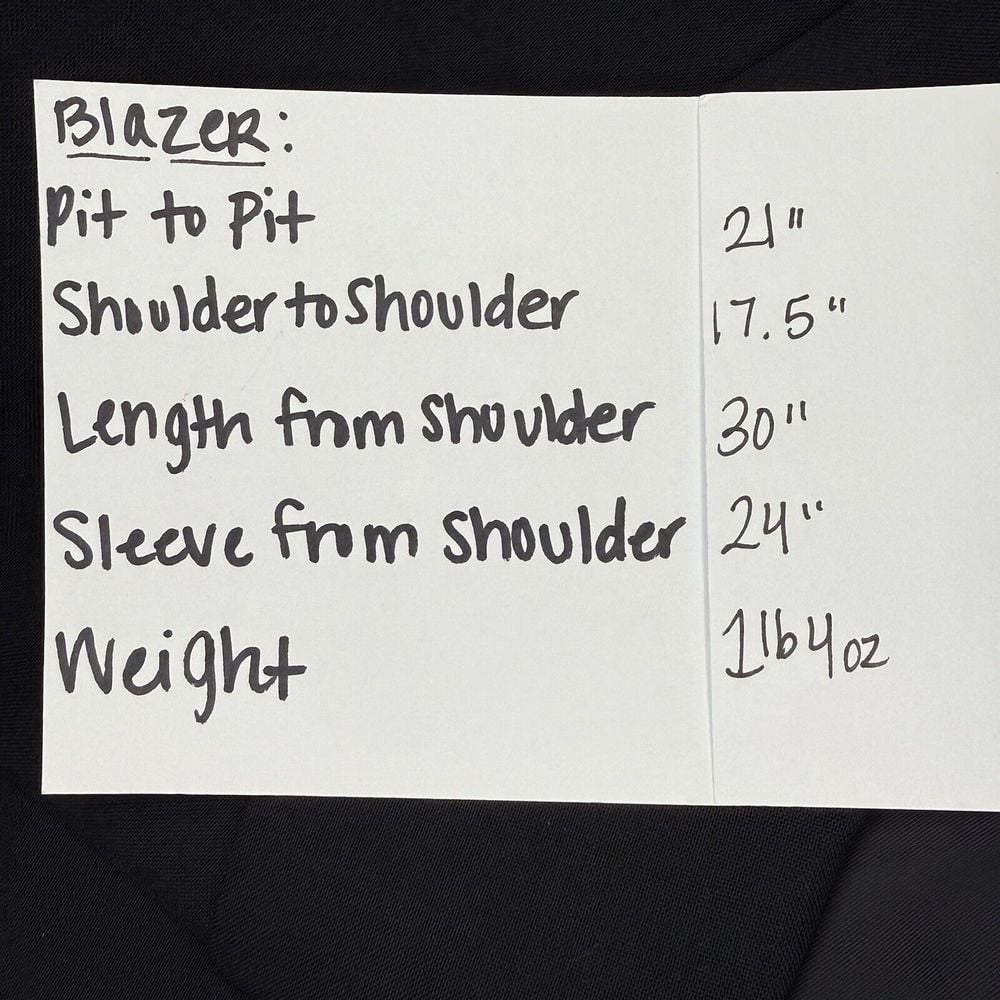 Blazer:
Pit to Pit 21"
Shoulder to Shoulder 17.5"
Length from Shoulder 30"
Sleeve from Shoulder 24"
Weight 1lb 4oz